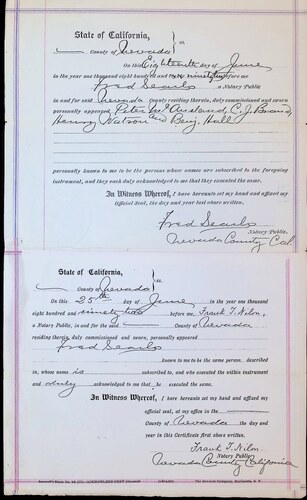 State of California, } ss.
County of Nevada
On this Eighteenth day of June
in the year one thousand eight hundred and ninety before me
Fred Searls a Notary Public
in and for said Nevada County residing therein, duly commissioned and sworn
personally appeared Peter C. J. Brand,
Henry Watson and Benj. Hall
personally known to me to be the persons whose names are subscribed to the foregoing
instrument, and they each duly acknowledged to me that they executed the same.
In Witness Whereof, I have hereunto set my hand and affixed my
official Seal, the day and year last above written.
Fred Searls
Notary Public
Nevada County Cal
State of California, } ss.
County of Nevada
On this 25th day of June in the year one thousand
eight hundred and ninety two before me, Frank T. Nilon,
a Notary Public, in and for the said County of Nevada
residing therein, duly commissioned and sworn, personally appeared
Fred Searls
known to me to be the same person described
in, whose name is subscribed to, and who executed the within instrument
and duly acknowledged to me that he executed the same.
In Witness Whereof, I have hereunto set my hand and affixed my
official seal, at my office in the County of
Nevada the day and
year in this Certificate first above written.
Frank T. Nilon
Notary Public
Nevada County California